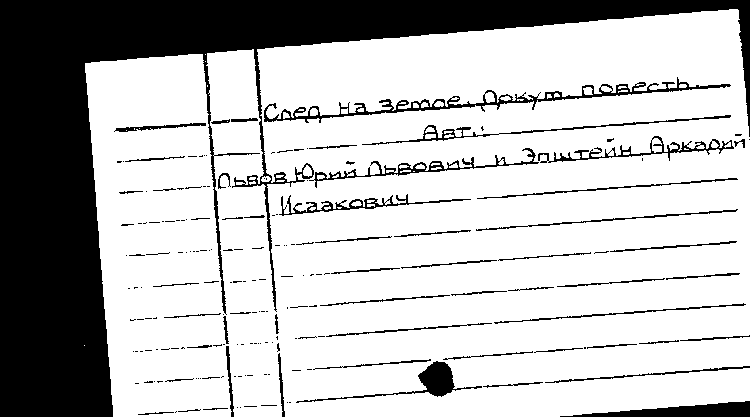 След на земле. Докум. повесть.
Авт.:
Львов, Юрий Львович и Эпштейн, Аркадий
Исаакович